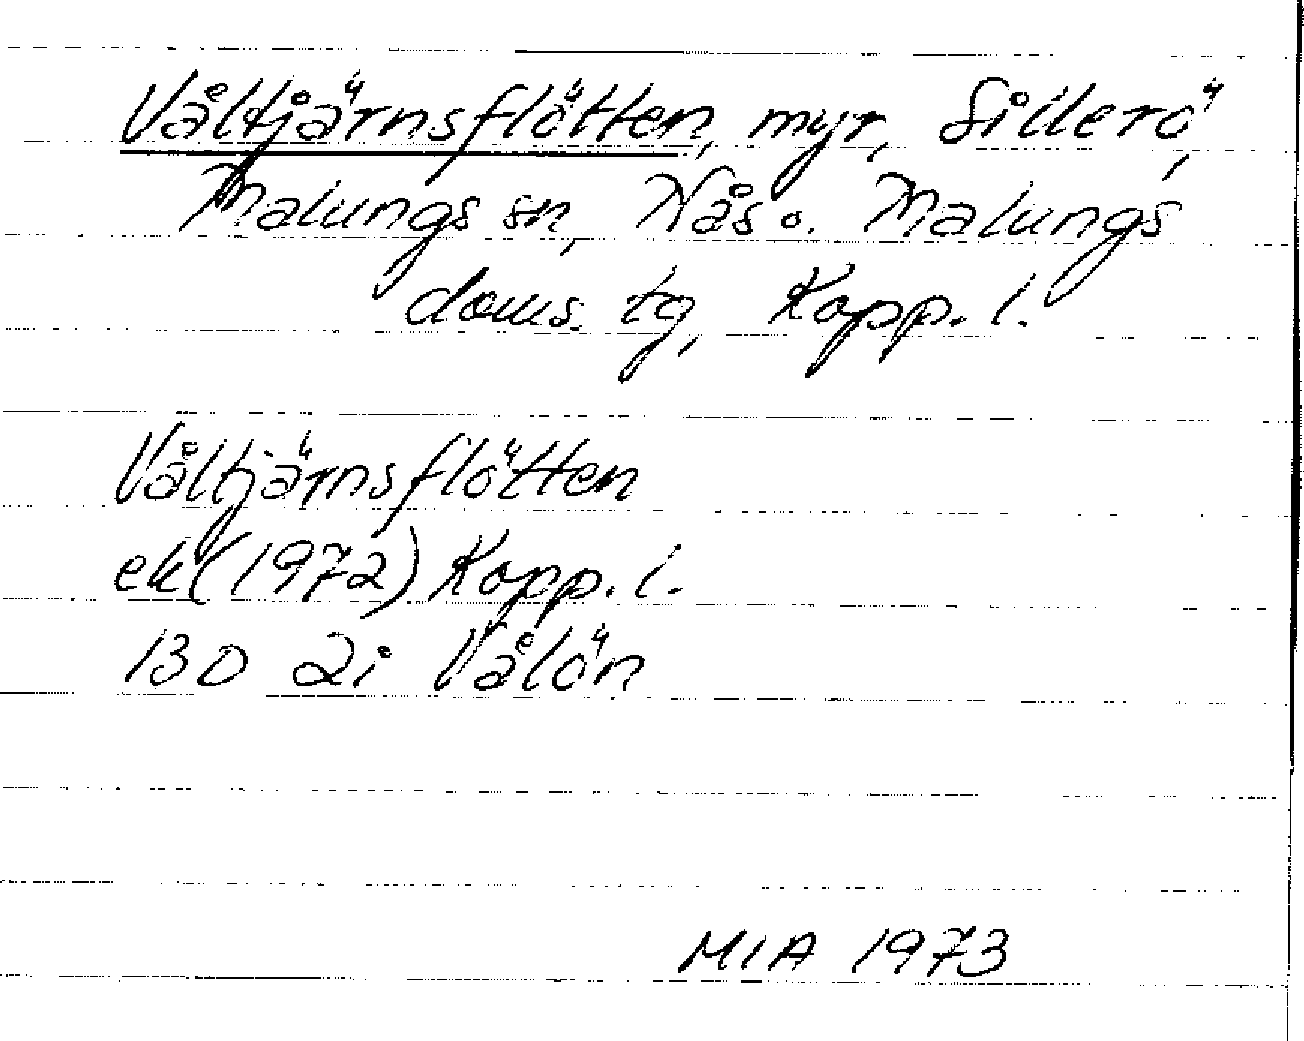 Våltjärnsflötten, myr, Sillerö,
Malungs sn, Nås o. Malungs
doms. tg, Kopp. l.
Våltjärnsflötten
ek (1972) Kopp. l.
13D 2i Vålön
MIA 1973